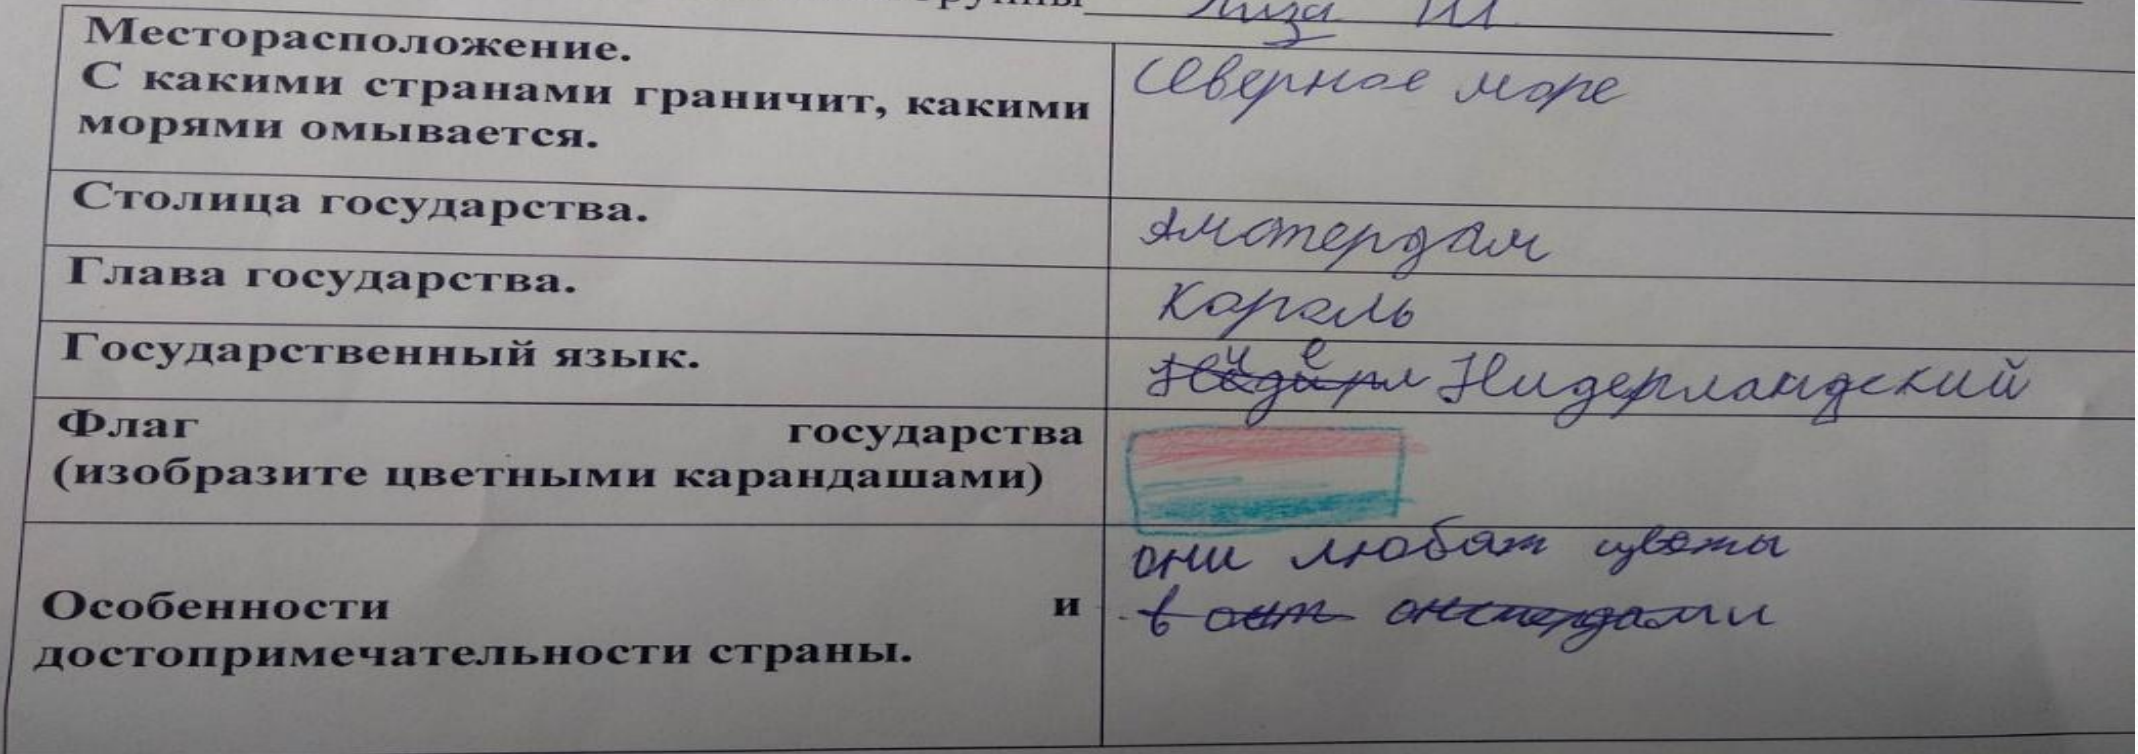 Лиза Ш
Месторасположение.
С какими странами граничит, какими
морями омывается.
Северное море
Столица государства.
Амстердам
Глава государства.
Король
Государственный язык.
Нидерландский
Флаг государства
(изобразите цветными карандашами)
они любят цветы
Особенности и
достопримечательности страны.